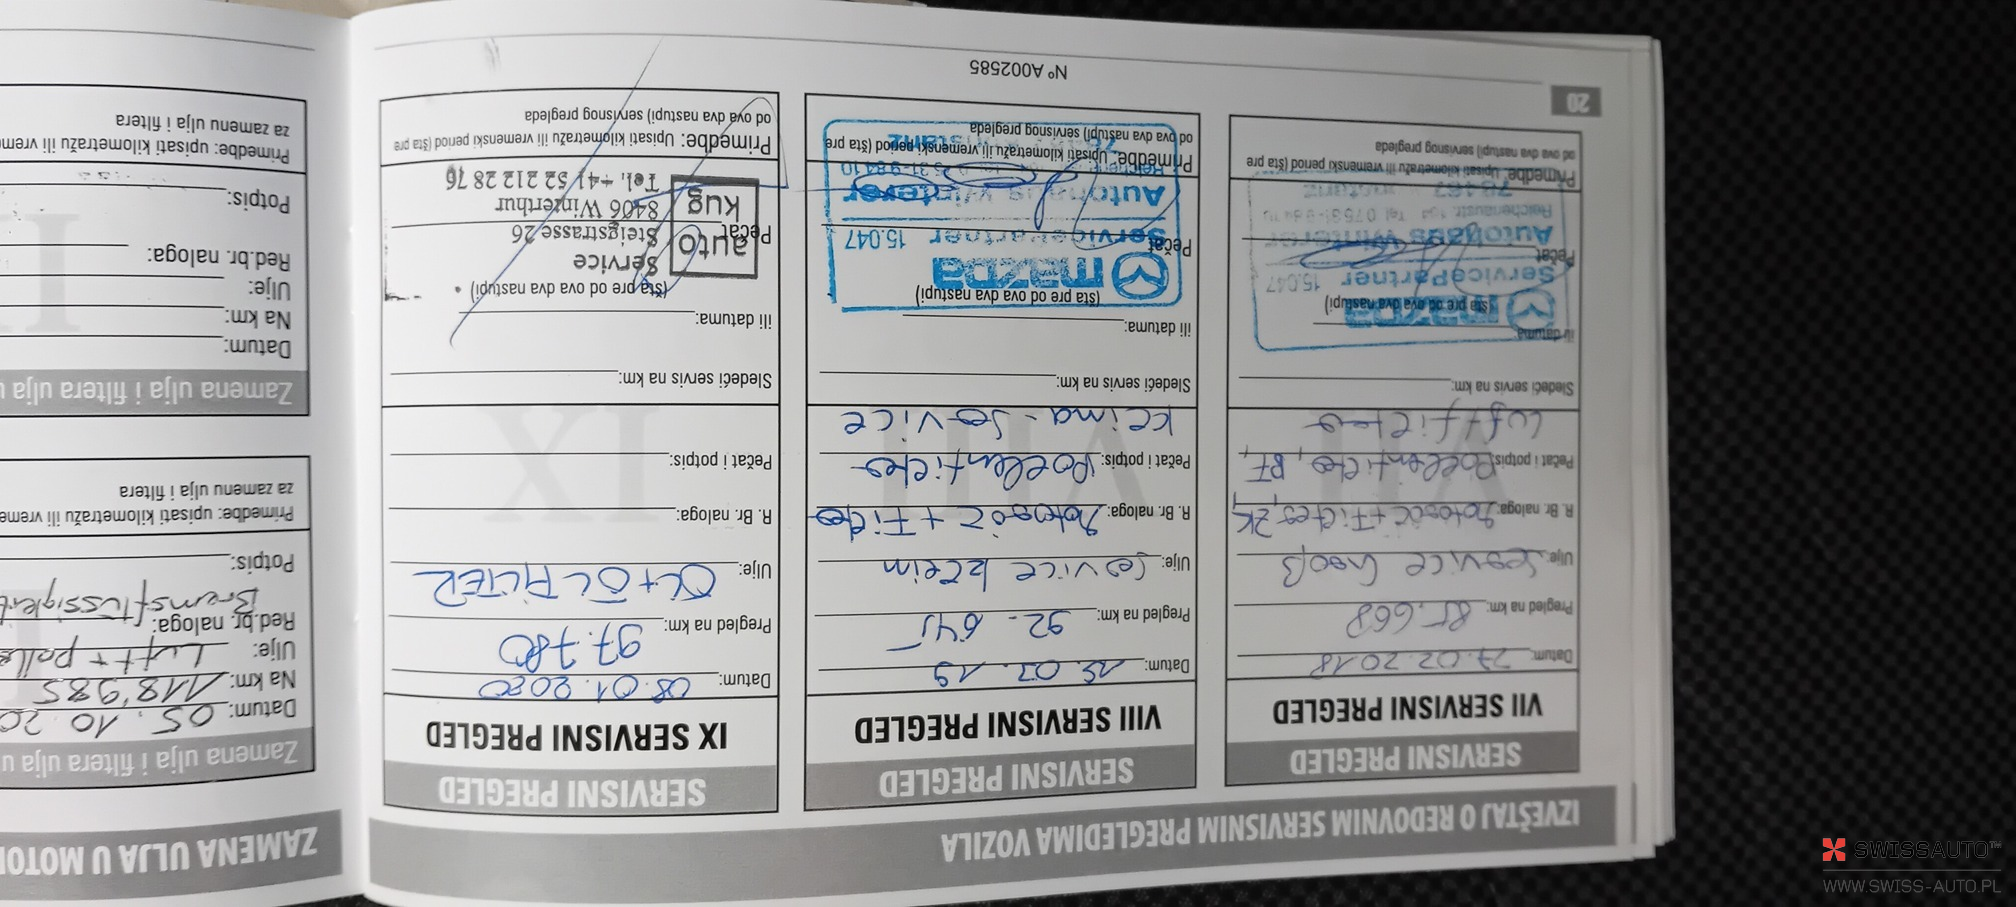 IZVEŠTAJ O REDOVNIM SERVISNIM PREGLEDIMA VOZILA
SERVISNI PREGLED
VII SERVISNI PREGLED
Datum: 27.02.2018
Pregled na km: 85.668
Ulje: Service Groß
R. Br. naloga: Motoröl + Filter, ZK,
Pečat i potpis: Pollenfilter, BF,
Luftfilter
Sledeći servis na km:
ili datuma:
(šta pre od ova dva nastupi)
mazda
ServicePartner 15.047
Pečat
Autohaus Winterer
Primedbe: Upisati kilometražu ili vremenski period (šta pre
od ova dva nastupi) servisnog pregleda
20
SERVISNI PREGLED
VIII SERVISNI PREGLED
Datum: 15.02.19
Pregled na km: 92.645
Ulje: Service klein
R. Br. naloga: Motoröl + Filter
Pečat i potpis: Pollenfilter
Klima-Service
Sledeći servis na km:
ili datuma:
(šta pre od ova dva nastupi)
mazda
ServicePartner 15.047
Pečat
Autohaus Winterer
Primedbe: Upisati kilometražu ili vremenski period (šta pre
od ova dva nastupi) servisnog pregleda
SERVISNI PREGLED
IX SERVISNI PREGLED
Datum: 08.01.2020
Pregled na km: 97.780
Ulje: ÖL + ÖLFILTER
R. Br. naloga:
Pečat i potpis:
Sledeći servis na km:
ili datuma:
(šta pre od ova dva nastupi)
Pečat
auto
kug
Service
Steigstrasse 26
8406 Winterthur
Tel. +41 52 212 28 76
Primedbe: Upisati kilometražu ili vremenski period (šta pre
od ova dva nastupi) servisnog pregleda
Nº A002585
ZAMENA ULJA U MOTO
Zamena ulja i filtera ulja u
Datum: 05.10.20
Na km: 118'985
Ulje: Luft + Polle
Red.br. naloga: Bremsflüssigkeit
Potpis:
Primedbe: upisati kilometražu ili vreme
za zamenu ulja i filtera
Zamena ulja i filtera ulja u
Datum:
Na km:
Ulje:
Red.br. naloga:
Potpis:
Primedbe: upisati kilometražu ili vreme
za zamenu ulja i filtera
SWISSAUTO™
WWW.SWISS-AUTO.PL